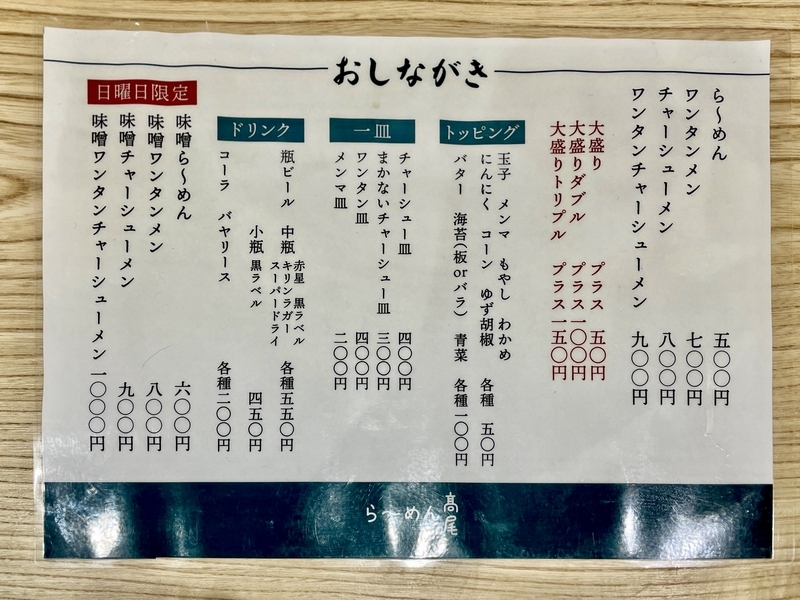 おしながき
ら〜めん 五〇〇円
ワンタンメン 七〇〇円
チャーシューメン 八〇〇円
ワンタンチャーシューメン 九〇〇円
大盛り プラス 五〇円
大盛りダブル プラス一〇〇円
大盛りトリプル プラス一五〇円
トッピング
玉子 メンマ もやし わかめ
にんにく コーン ゆず胡椒 各種 五〇円
バター 海苔(板orバラ) 青菜 各種一〇〇円
一皿
チャーシュー皿 四〇〇円
まかないチャーシュー皿 三〇〇円
ワンタン皿 四〇〇円
メンマ皿 二〇〇円
ドリンク
瓶ビール 中瓶 赤星 黒ラベル
キリンラガー
スーパードライ 各種五五〇円
小瓶 黒ラベル 四五〇円
コーラ バヤリース 各種二〇〇円
日曜日限定
味噌ら〜めん 六〇〇円
味噌ワンタンメン 八〇〇円
味噌チャーシューメン 九〇〇円
味噌ワンタンチャーシューメン 一〇〇〇円
ら〜めん 髙尾